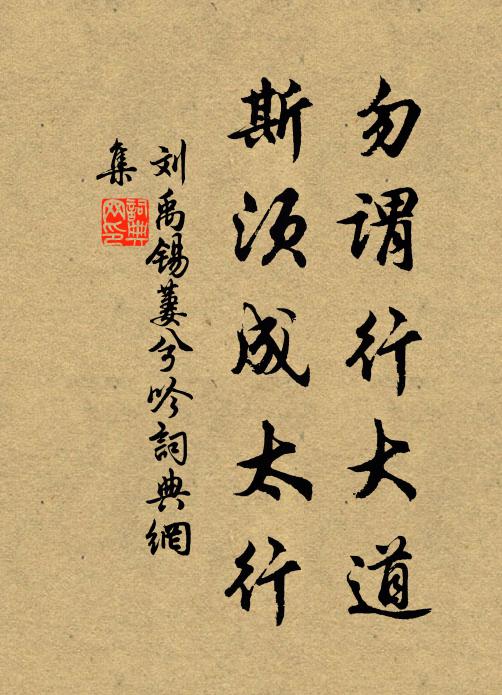 勿谓行大道
斯须成太行
刘禹锡萋兮吟詞典網
集
詞典
网印